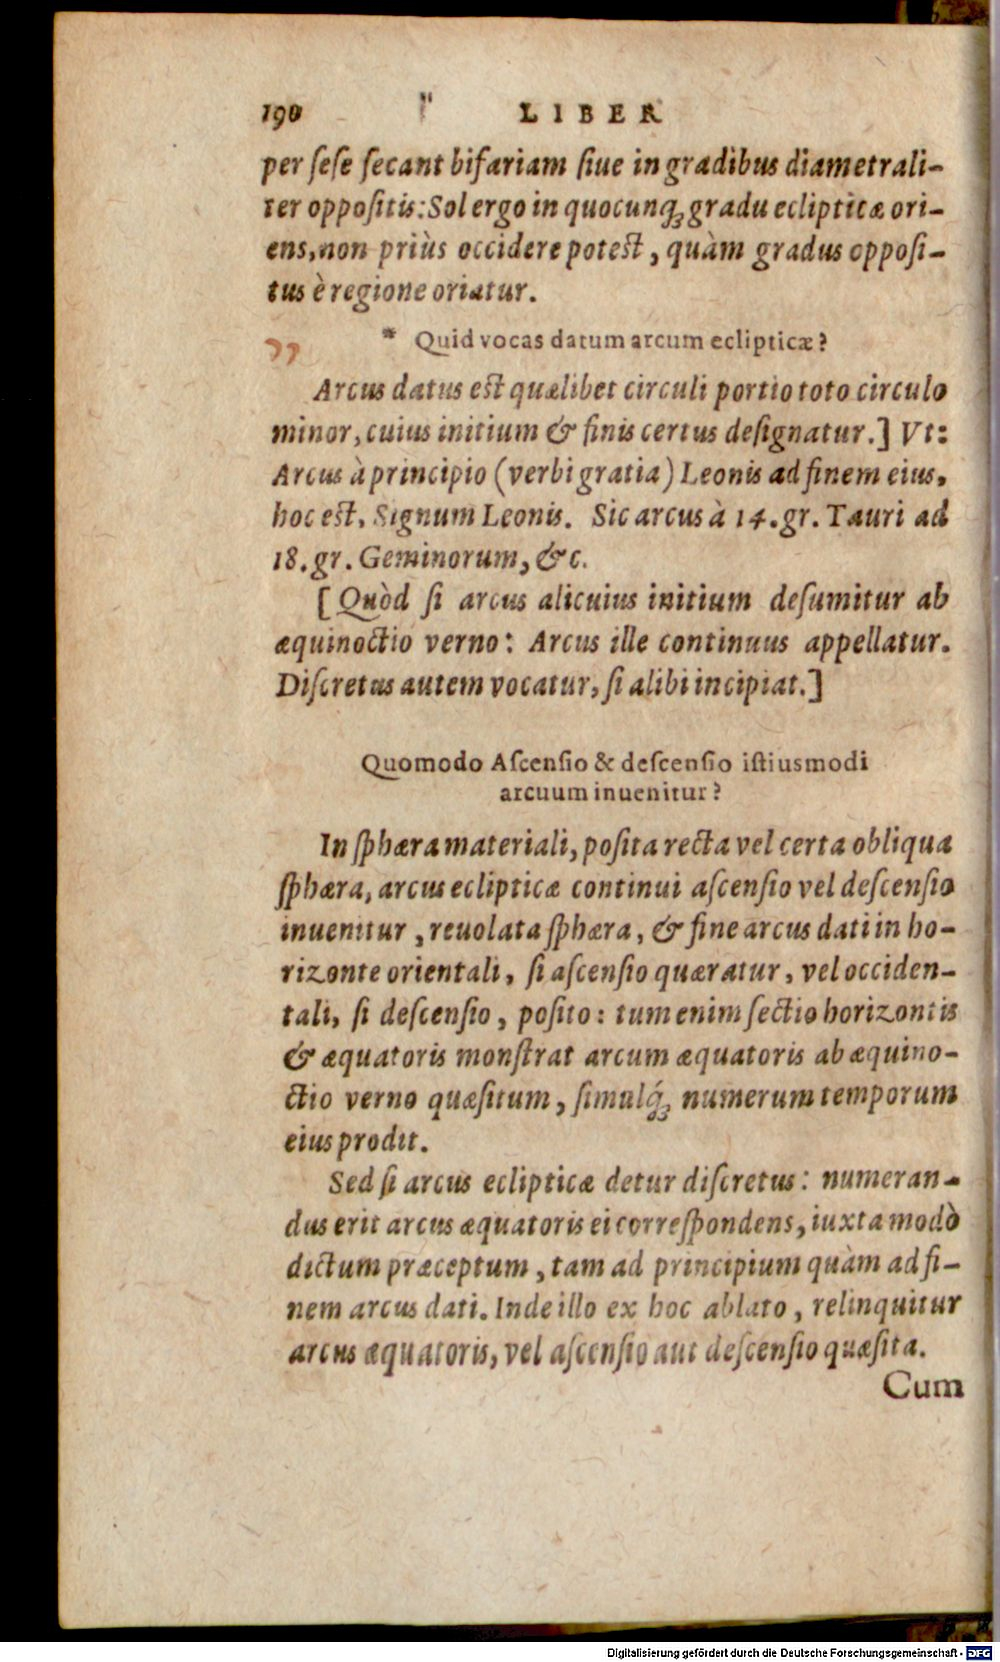 190 LIBER
per ſeſe ſecant bifariam ſiue in gradibus diametrali-
ter oppoſitis: Sol ergo in quocunqꝫ gradu eclipticæ ori-
ens, non priùs occidere poteſt, quàm gradus oppoſi-
tus è regione oriatur.
* Quid vocas datum arcum eclipticæ?
Arcus datus eſt quælibet circuli portio toto circulo
minor, cuius initium & finis certus deſignatur.] Vt:
Arcus à principio (verbi gratia) Leonis ad finem eius,
hoc eſt, Signum Leonis. Sic arcus à 14. gr. Tauri ad
18. gr. Geminorum, &c.
[Quòd ſi arcus alicuius initium deſumitur ab
æquinoctio verno: Arcus ille continuus appellatur.
Diſcretus autem vocatur, ſi alibi incipiat.]
Quomodo Aſcenſio & deſcenſio iſtiusmodi
arcuum inuenitur?
In ſphæra materiali, poſita recta vel certa obliqua
ſphæra, arcus eclipticæ continui aſcenſio vel deſcenſio
inuenitur, reuoluta ſphæra, & fine arcus dati in ho-
rizonte orientali, ſi aſcenſio quæratur, vel occiden-
tali, ſi deſcenſio, poſito: tum enim ſectio horizontis
& æquatoris monſtrat arcum æquatoris ab æquino-
ctio verno quæſitum, ſimulq́ꝫ numerum temporum
eius prodit.
Sed ſi arcus eclipticæ detur diſcretus: numeran-
dus erit arcus æquatoris ei correſpondens, iuxta modò
dictum præceptum, tam ad principium quàm ad fi-
nem arcus dati. Inde illo ex hoc ablato, relinquitur
arcus æquatoris, vel aſcenſio aut deſcenſio quæſita.
Cum
Digitalisierung gefördert durch die Deutsche Forschungsgemeinschaft - DFG